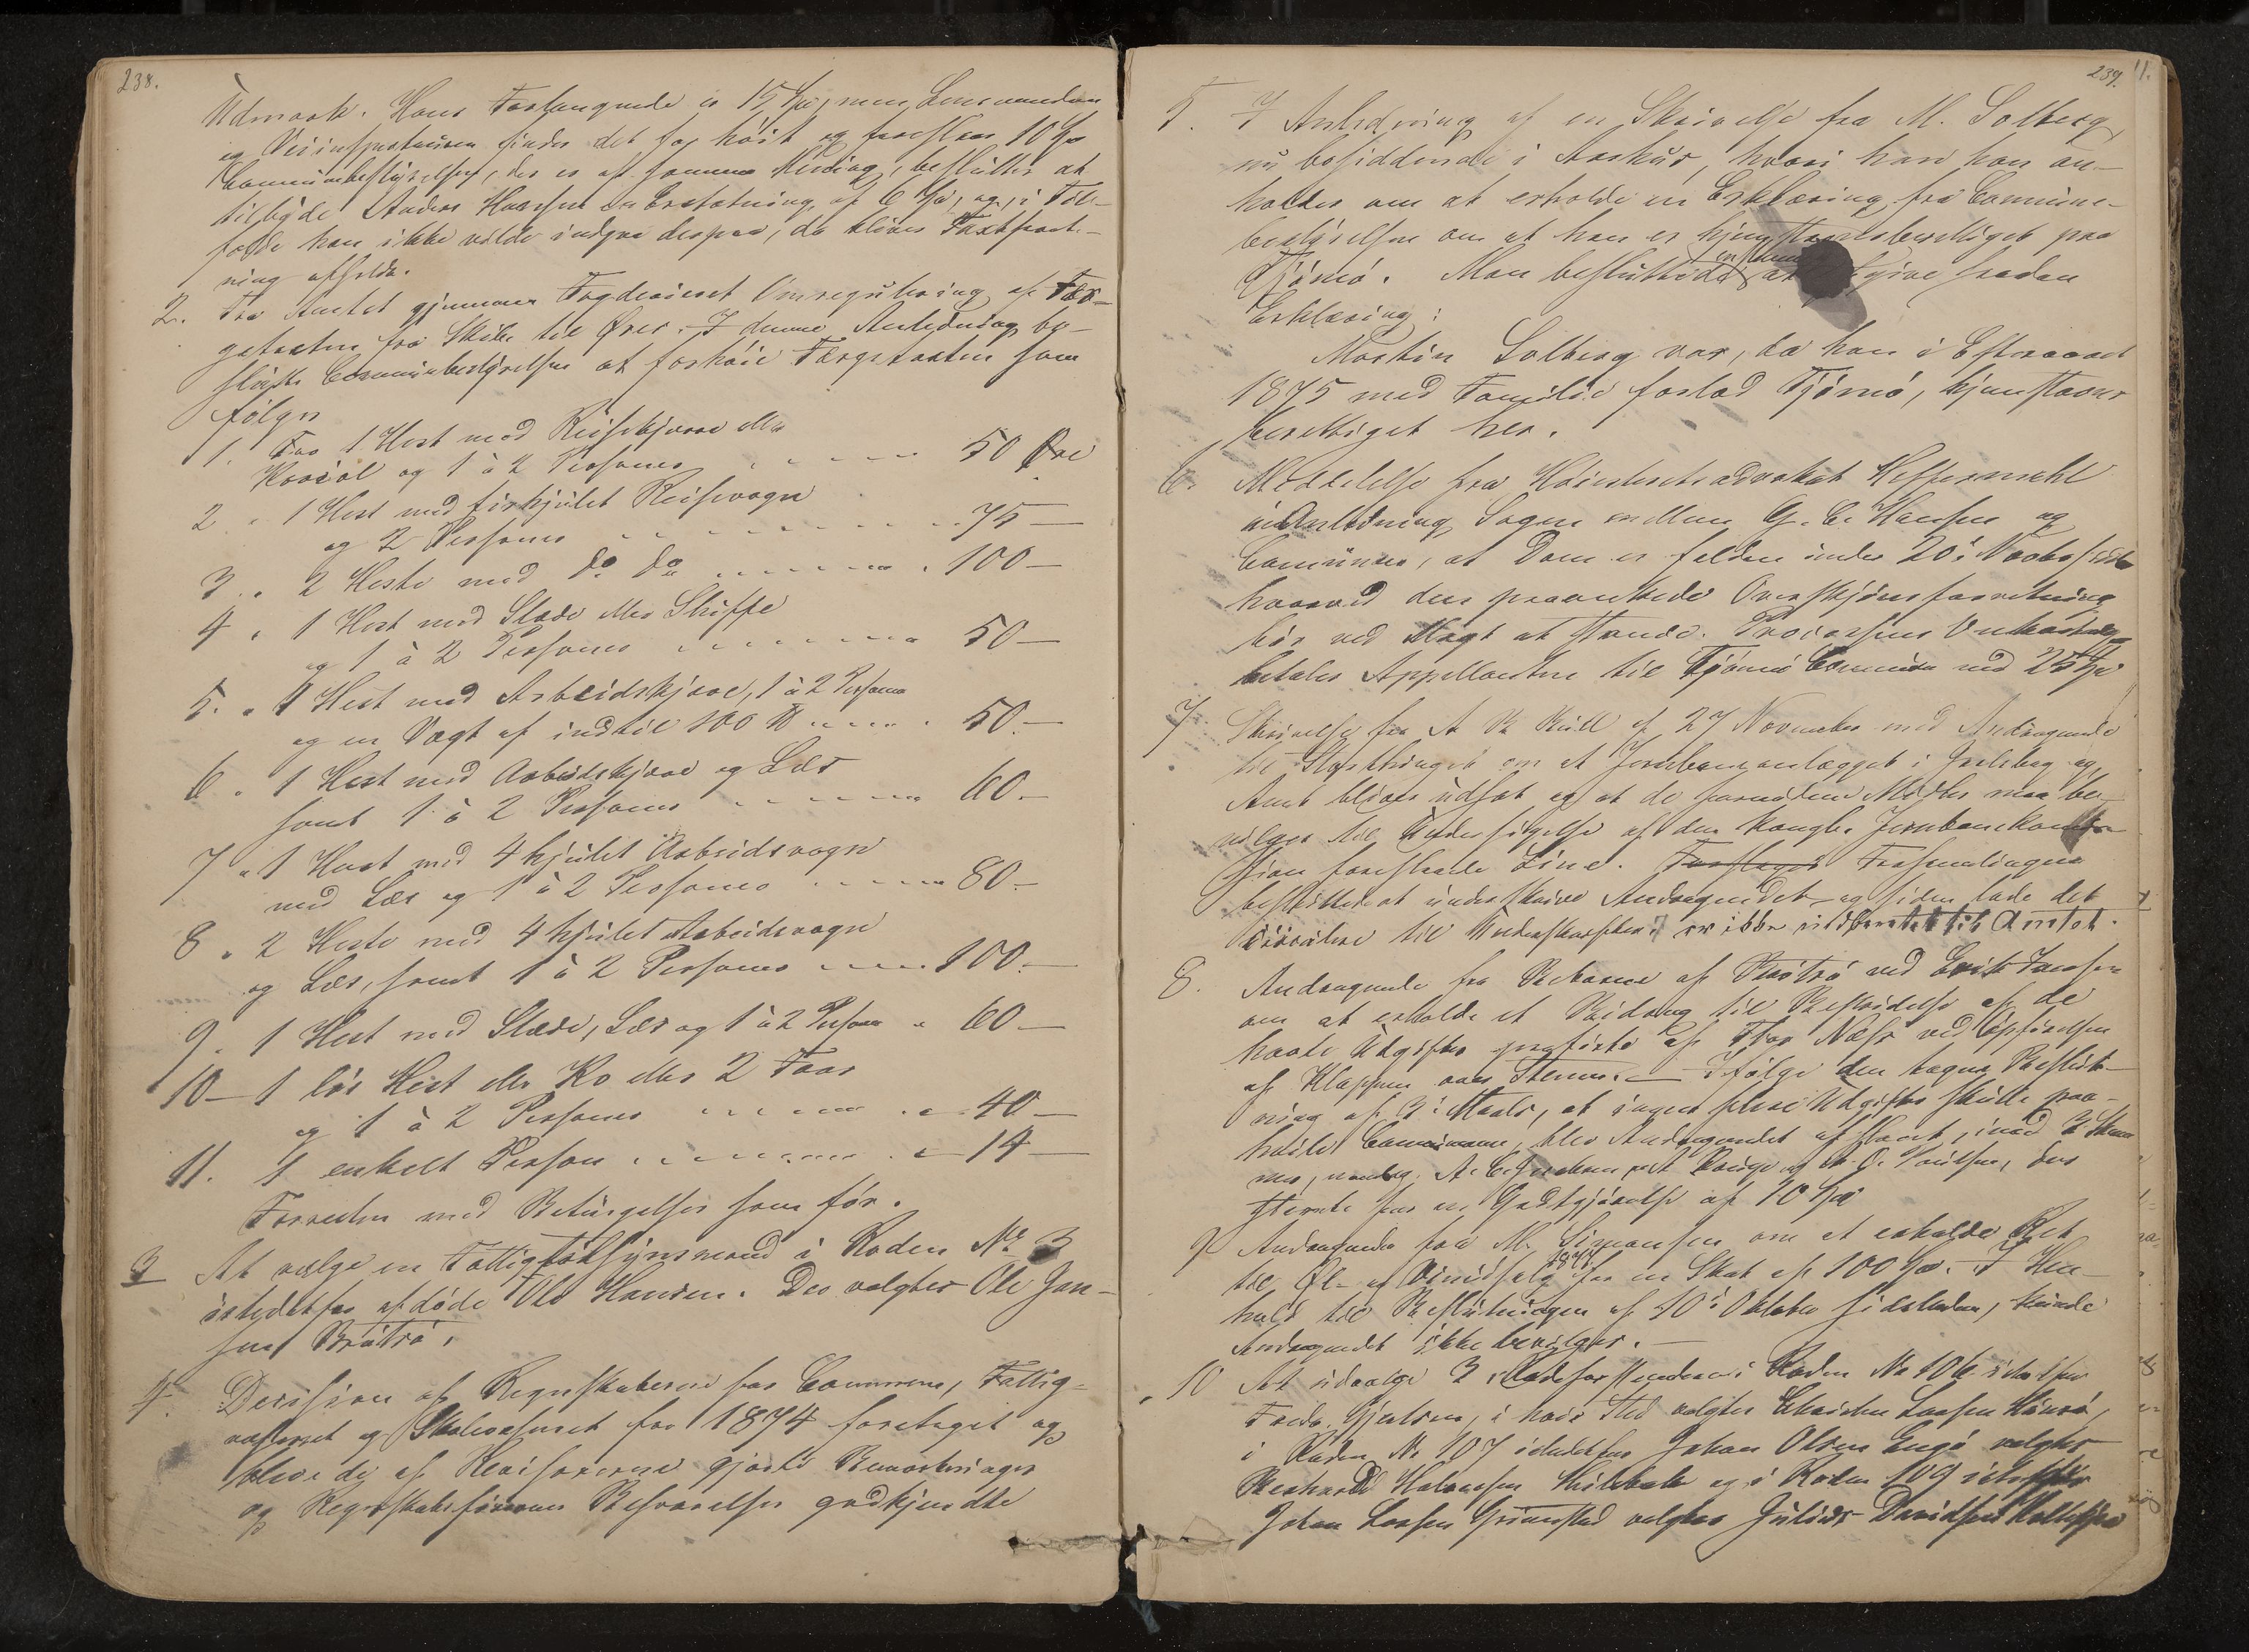 238.
Udmark. Hans Forlangende er 15 Spd, men Lensmanden
og Veiinspecteuren finder det for høit og foreslaar 10 Spd
Communebestyrelsen, der er af samme Mening, beslutter at
tilbyde Anders Hansen en Erstatning af 6 Spd, og, i Til-
fælde han ikke vilde indgaa derpaa, da bliver Taxtforret-
ning afholdt.
2. Fra Amtet gjennem Fogderiet Omregulering af Fær-
getaxten fra til Ører. I denne Anledning be-
sluttede Communebestyrelsen at forhøie Færgetaxten som
følger
1. For 1 Hest med Reisekjærre eller
Karriol og 1 à 2 Personer 50 Øre
2 " 1 Hest med firhjulet Reisevogn
og 2 Personer 75 —
3. " 2 Heste med do do 100 —
4 " 1 Hest med Slæde eller Sluffe
og 1 à 2 Personer 50 —
5. " 1 Hest med Arbeidskjærre, 1 à 2 Personer
og en Vægt af indtil 100 ℔ 50 —
6 " 1 Hest med Arbeidskjærre og Læs
samt 1 à 2 Personer 60 —
7 " 1 Hest med 4 hjulet Arbeidsvogn
med Læs og 1 à 2 Personer 80 —
8 " 2 Heste med 4 hjulet Arbeidsvogn
og Læs, samt 1 à 2 Personer 100 —
9. 1 Hest med Slæde, Læs og 1 à 2 Personer 60 —
10 — 1 løs Hest eller Ko eller 2 Faar
og 1 à 2 Personer 40 —
11. 1 enkelt Person 14 —
Forresten med Betingelser som før.
3 At vælge en Fattigtilsynsmand i Roden No 3
istedetfor afdøde Ole Hansen. Der valgtes Ole Jan-
sen Bråtrø.
4. Decision af Regnskaberne for Communen, Fattig-
væsenet og Skolevæsenet for 1874 foretaget og
bleve de af Revisorerne gjorte Bemærkninger
og Regnskabsførernes Besvarelser godkjendte
239. 11.
5. I Anledning af en Skrivelse fra M. Solberg
nu bosiddende i Aarhus, hvori han an-
holder om at erholde en Erklæring fra Commune-
bestyrelsen om at han er hjemstavnsberettiget paa
Tjømø. Man besluttede at give saadan
Erklæring:
Martin Solberg var, da han i Efteraaret
1875 med Familie forlod Tjømø, hjemstavns-
berettiget her.
6. Meddelelse fra Høiesteretsadvokat Heffermehl
i Anledning Sagen mellem G. C. Hansen og
Communen, at Dom er falden under 20de Novbr sidstl
hvorved den paaankede Overskjønsforretning
bør ved Magt at stande. Processens Omkostninger
betaler Appellanten til Tjømø Commune med 25 Spd
7. Skrivelse fra A B Bull af 27 November med Andragende
til Storthinget om at Jernbaneanlægget i Jarlsberg og
Amt bliver udsat og at de fornødne Midler maa be-
vilges til Undersøgelse af den kongl. Jernbanekommis-
sion foreslaaede Linie. Forsamlingen
besluttede at underskrive Andragendet og siden lade det
cirkulere til Underskrifter. er ikke indsendt til Amtet.
8. Andragende fra Beboerne af Bråtrø ved Jansen
om at erholde et Bidrag til Bestridelse af de
havte Udgifter ved Opførelsen
af Kloppen over . — Ifølge den tagne Beslut-
ning af 3die Marts, at ingen flere Udgifter skulle paa-
hvile Communen, blev Andragendet afslaaet, imod 3 Stem-
mer, nemlig. A. C. og O. Paulsen, der
stemte for en Godtgjørelse af 10 Spd
9 Andragende fra M. Simonsen om at erholde Ret
til Øl- og Vinudsalg for en Skat af 100 Spd. I Hen-
hold til Beslutningen af 30te Oktober sidstleden, kunde
Andragendet ikke bevilges. —
10 At udvælge 3 Rodeforstandere i Roden No 106 istedetfor
Fredr. Gjertsen, i hvis Sted valgtes Larsen ,
i Roden No 107 istedetfor Johan Olsen Engø valgtes
Halvorsen og i Roden 109 istedetfor
Johan Larsen Grimestad valgtes Julius Davidsen